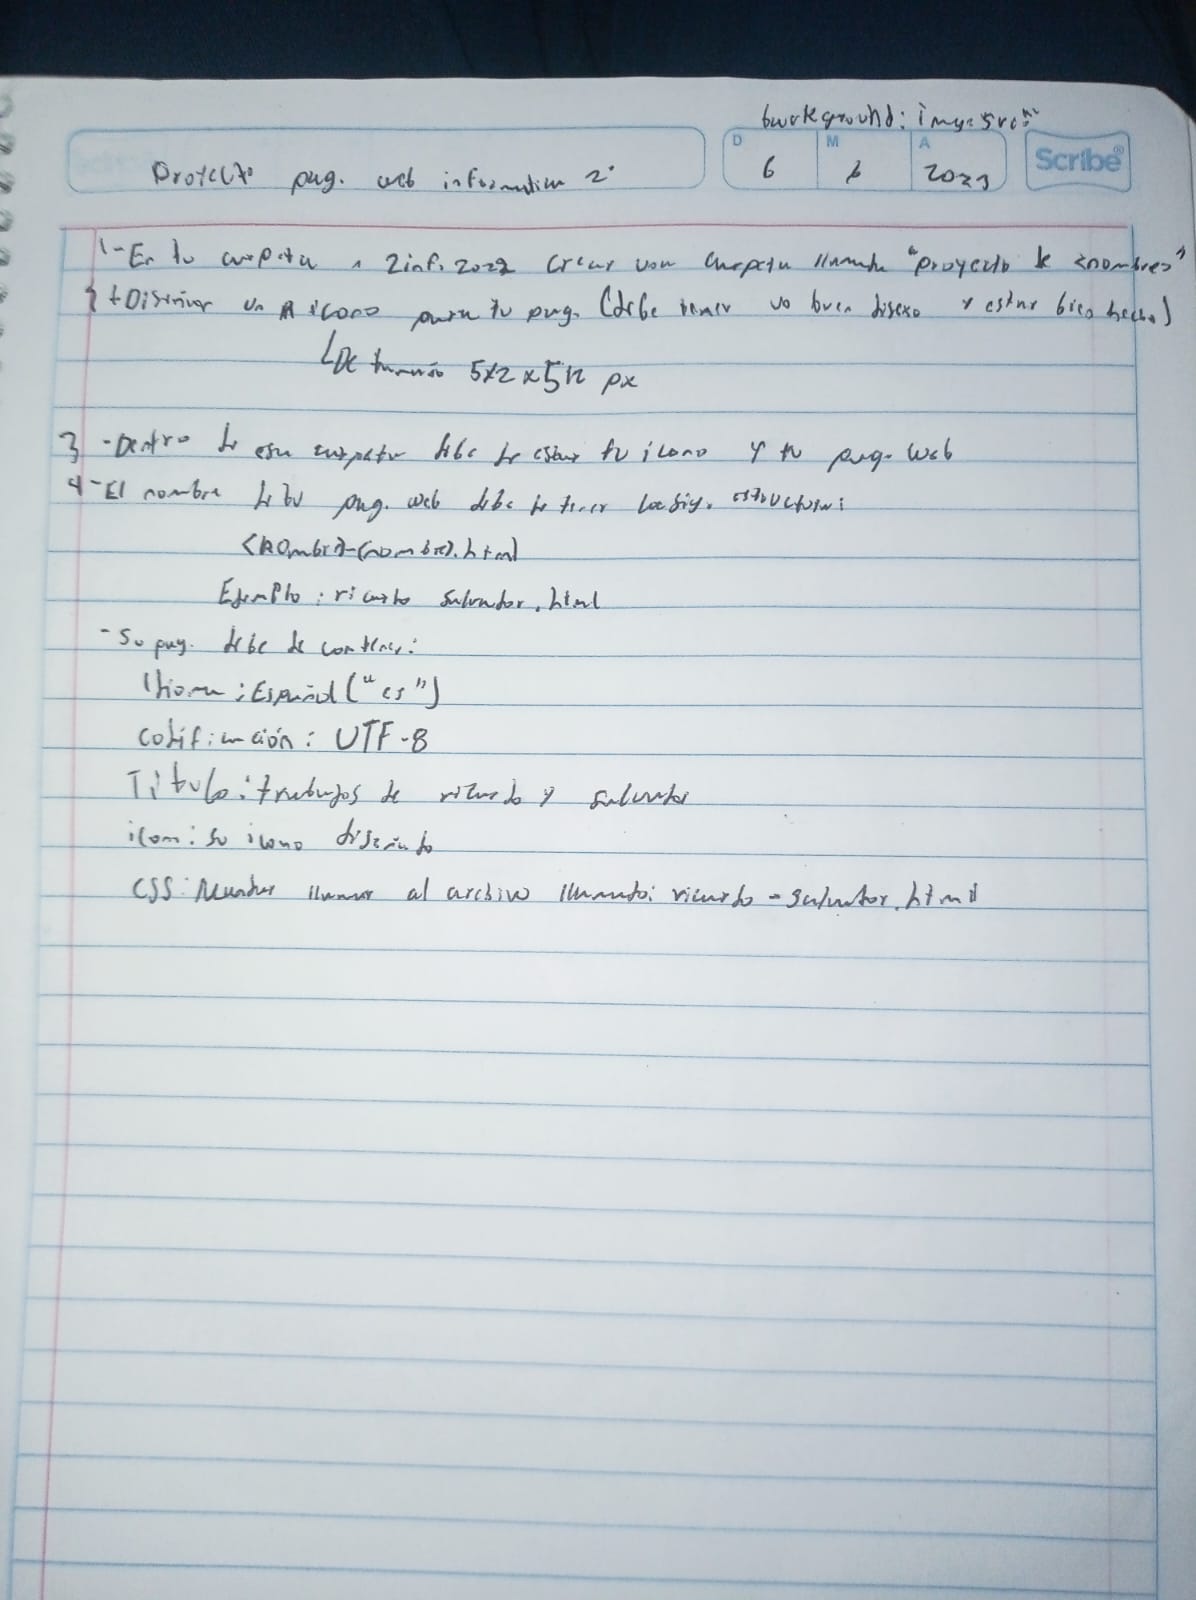 background: img src=""
D M A
Scribe
Proyecto pag. web informatica 2°
6 6 2023
1-En tu carpeta 2inf. 2022 crear una carpeta llamada "proyecto de 2nombres"
+Diseñar un icono para tu pag. (debe tener un buen diseño y estar bien hecho)
De tamaño 512x512 px
3 -Dentro de esa carpeta debe de estar tu icono y tu pag. web
4-El nombre de tu pag. web debe de tener la sig. estructura:
<nombre>-(nombre).html
Ejemplo: ricardo salvador.html
-Su pag. debe de contener:
Idioma: Español ("es")
codificación: UTF-8
Titulo: trabajos de ricardo y salvador
icon: su icono diseñado
CSS: Mandar llamar al archivo llamado: ricardo-salvador.html